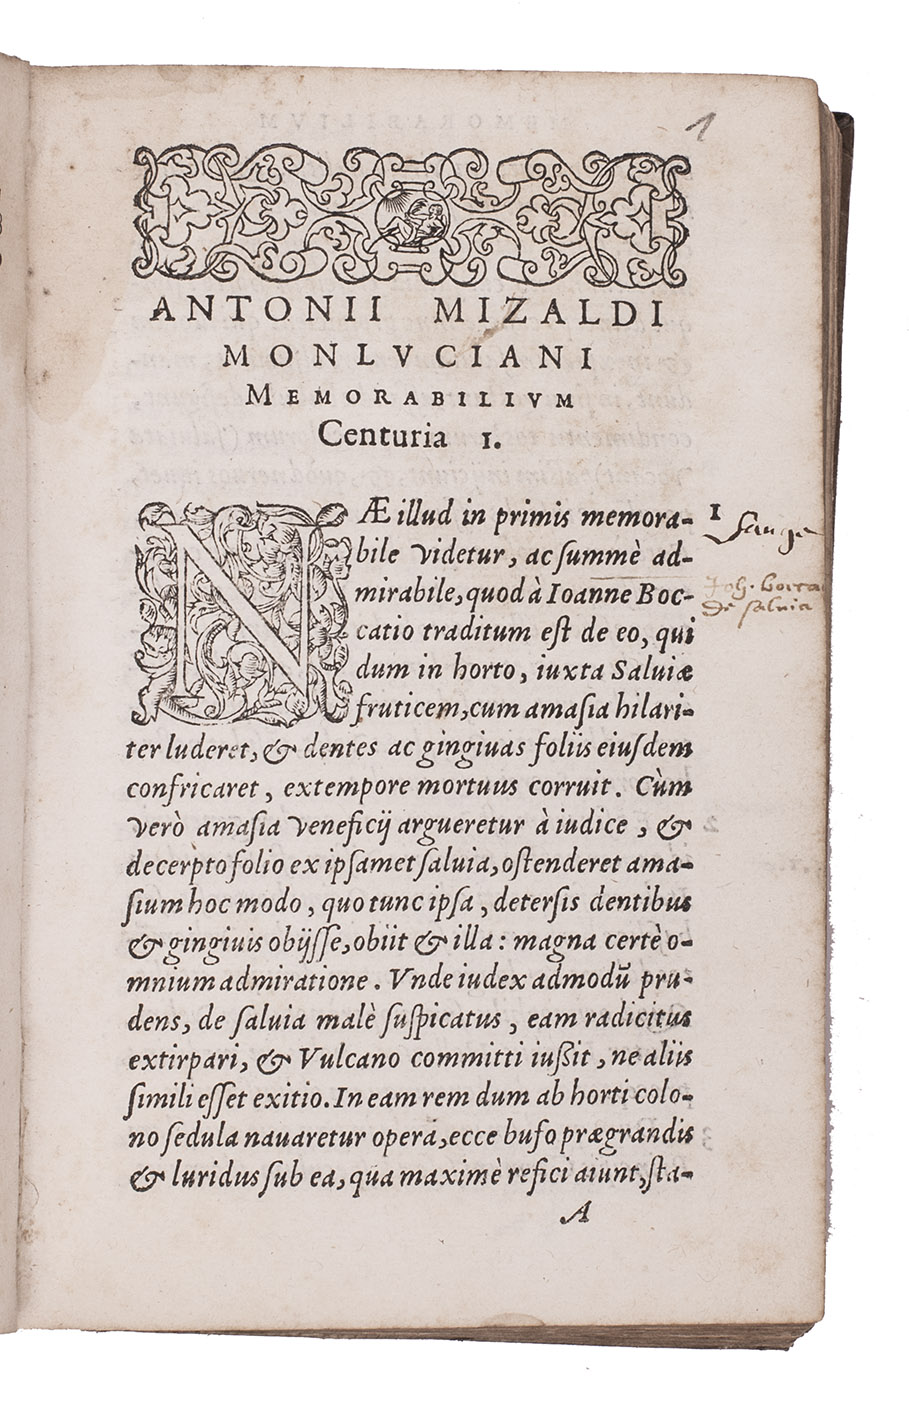 1
ANTONII MIZALDI
MONLVCIANI
MEMORABILIVM
Centuria 1.
NÆ illud in primis memora- 1
bile videtur, ac summè ad-
mirabile, quod à Ioanne Boc-
catio traditum est de eo, qui
dum in horto, iuxta Saluiæ
fruticem, cum amasia hilari-
ter luderet, & dentes ac gingiuas foliis eiusdem
confricaret, extempore mortuus corruit. Cùm
verò amasia veneficij argueretur à iudice, &
decerpto folio ex ipsamet saluia, ostenderet ama-
sium hoc modo, quo tunc ipsa, detersis dentibus
& gingiuis obijsse, obiit & illa: magna certè o-
mnium admiratione. Vnde iudex admodũ pru-
dens, de saluia malè suspicatus, eam radicitus
extirpari, & Vulcano committi iussit, ne aliis
simili esset exitio. In eam rem dum ab horti colo-
no sedula nauaretur opera, ecce bufo prægrandis
& luridus sub ea, qua maximè refici aiunt, sta-
A
Sauge
Joh. Bocca
de saluia